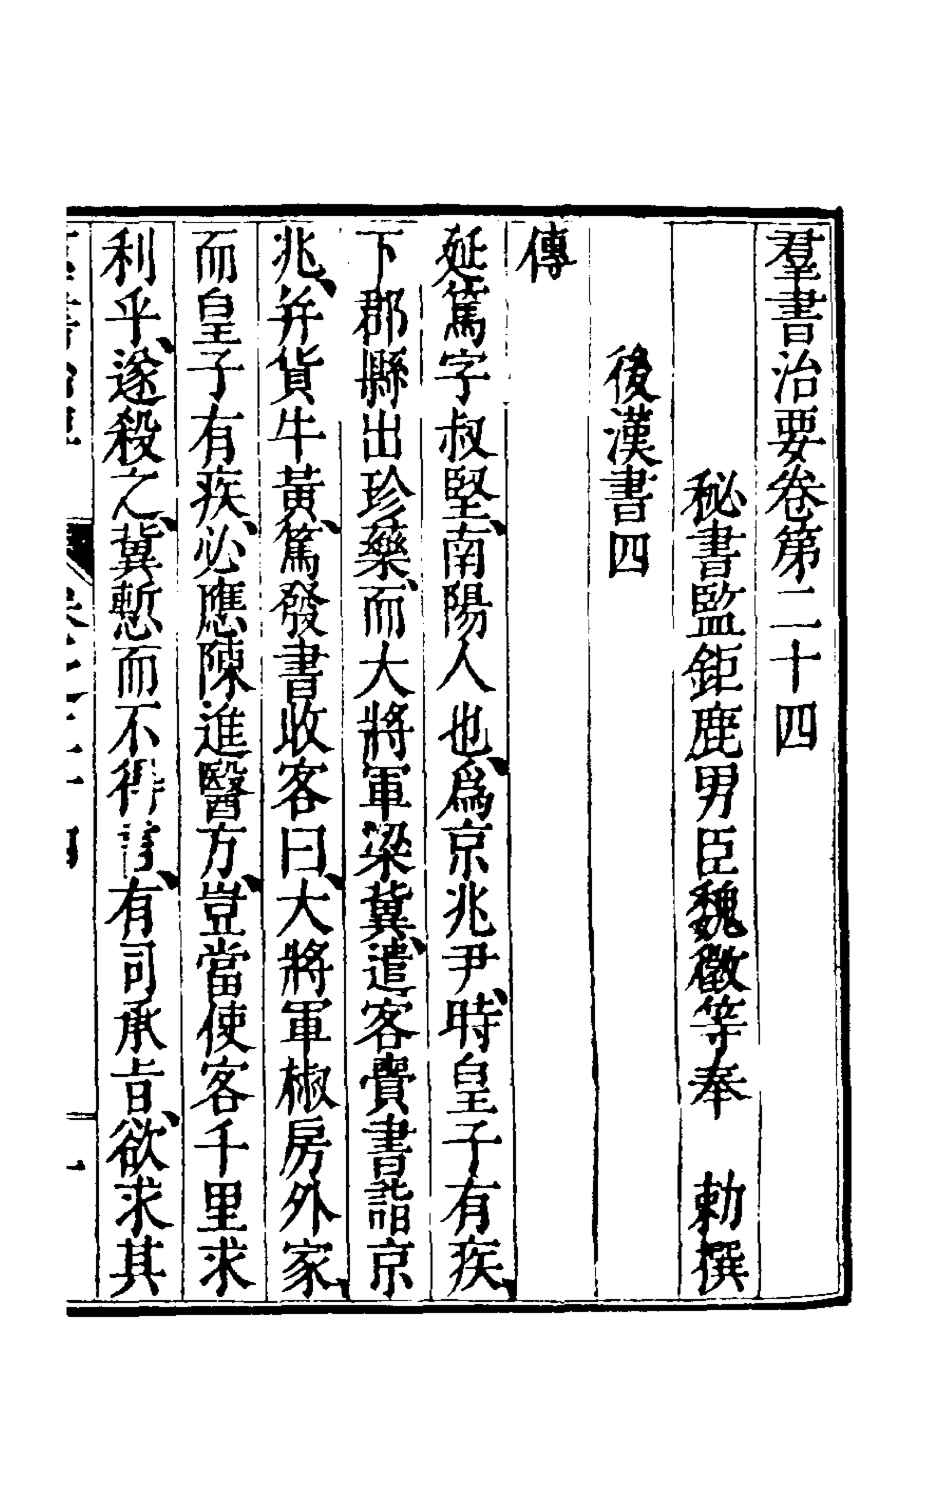 羣書治要卷第二十四
秘書監鉅鹿男臣魏徵等奉　勅撰
後漢書四
傳
延篤字叔堅、南陽人也、爲京兆尹、時皇子有疾、
下郡縣出珍藥、而大將軍梁冀、遣客賫書詣京
兆、并貨牛黃、篤發書收客曰、大將軍椒房外家、
而皇子有疾、必應陳進醫方、豈當使客千里求
利乎、遂殺之、冀慙而不得言、有司承旨、欲求其